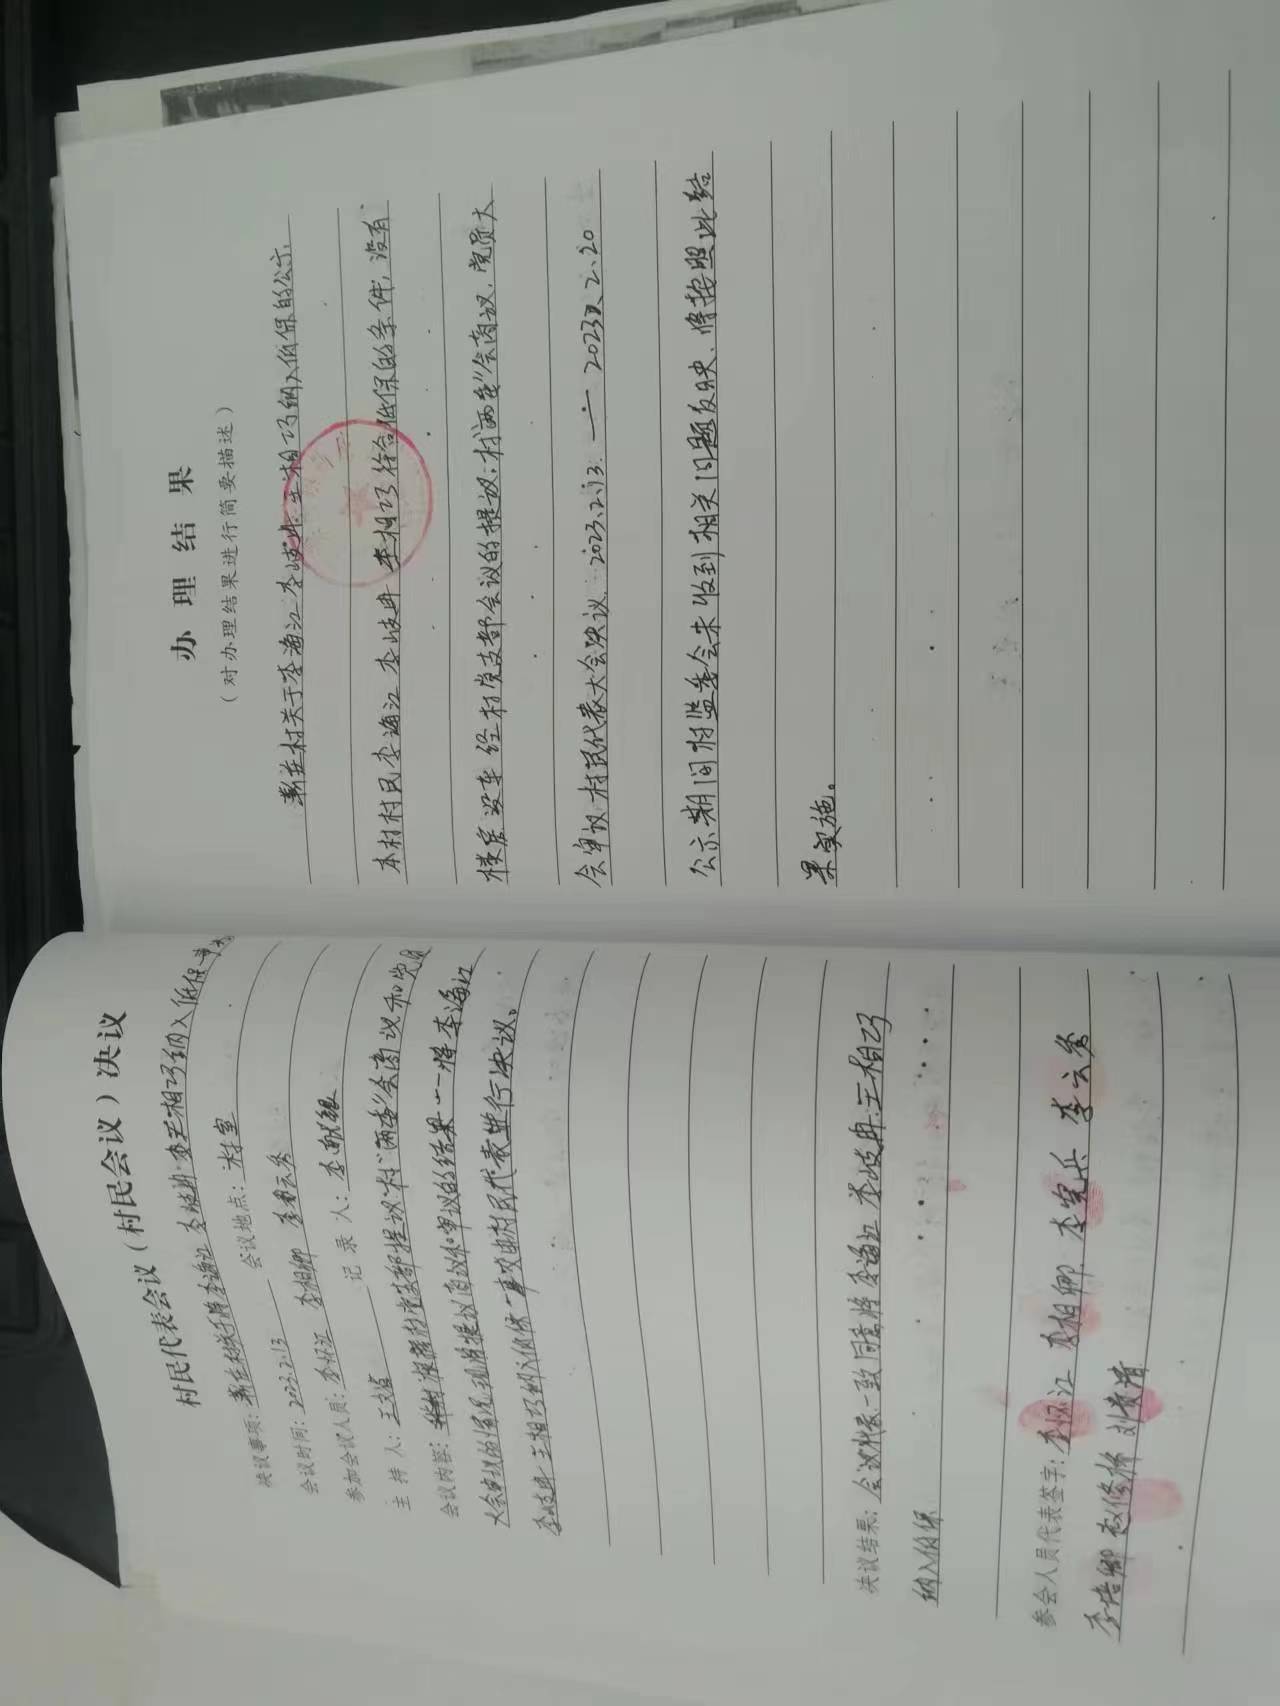 村民代表会议（村民会议）决议
决议事项：靳庄村关于将李海江 李岐冉 王相巧纳入低保事宜
会议时间：2023.2.13 会议地点：村室
参加会议人员：李怀江 李相卿 李云秀
主 持 人：王 记 录 人：李
会议内容：根据村党支部提议 村"两委"会商议和党员
大会审议的情况，现将提议商议和审议的结果一一将李海江
李岐冉 王相巧纳入低保一事交由村民代表进行决议。
决议结果：会议代表一致同意将李海江 李岐冉 王相巧
纳入低保
参会人员代表签字：李怀江 李相卿 李宪兵 李云秀
李培卿 赵修桥 刘青清
办 理 结 果
（对办理结果进行简要描述）
靳庄村关于李海江 李岐冉 王相巧纳入低保的公示
本村村民李海江 李岐冉 李相巧符合低保的条件，没有
楼房 没车 经村党支部会议的提议；村"两委"会商议，党员大
会审议 村民代表大会决议 2023.2.13 — 2023.2.20
公示期间村监委会未收到相关问题反映，将按照此结
果实施。